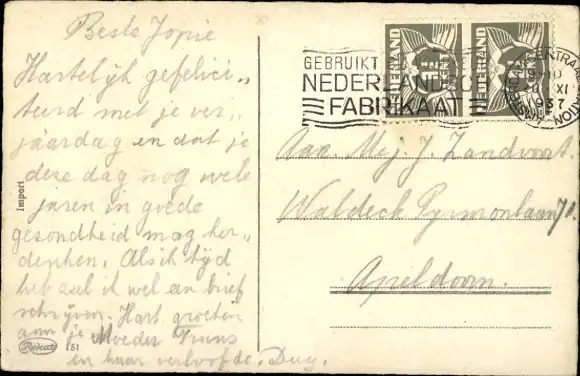 Beste Jopie
Hartelijk gefelici„
teerd met je ver„
jaardag en dat je
deze dag nog vele
jaren in goede
gezondheid mag her„
denken. Als ik tijd
heb zal ik wel een brief
schrijven. Hart. groeten
aan je Moeder Truus
en haar verloofde. Dug.
Import
Rokat 151
GEBRUIKT
NEDERLANDSCH
FABRIKAAT
NEDERLAND
CENT
NEDERLAND
CENT
AMSTERDAM CENTRAAL STATION
XI
1937
Aan Mej. J. Zandvoort.
Waldeck Pyrmontlaan 71.
Apeldoorn.